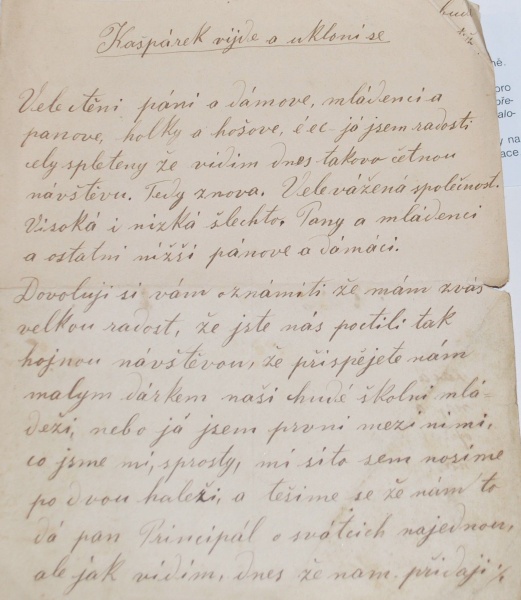 Kašpárek vijde a ukloni se
Velectěni páni a dámove, mládenci a
panove, holky a hošove, é ec já jsem radosti
cely spleteny že vidim dnes takovo četnou
návštěvu. Tedy znova. Velevážená společnost.
Visoká i nizká šlechto. Pany a mládenci
a ostatni nižši pánove a dámáci.
Dovoluji si vám oznámiti že mám zvás
velkou radost, že jste nás poctili tak
hojnou návštěvou, že přispějete nám
malym dárkem naši hudé školni mlá-
deži, nebo já jsem prvni mezi nimi,
co jsme mi, sprosty, mi si to sem nosime
po dvou haleži, a těšime se že nám to
dá pan Principál o svátcich najednou,
ale jak vidim, dnes že nam přidaji
né.
pro
pře-
alo-
y na
ace